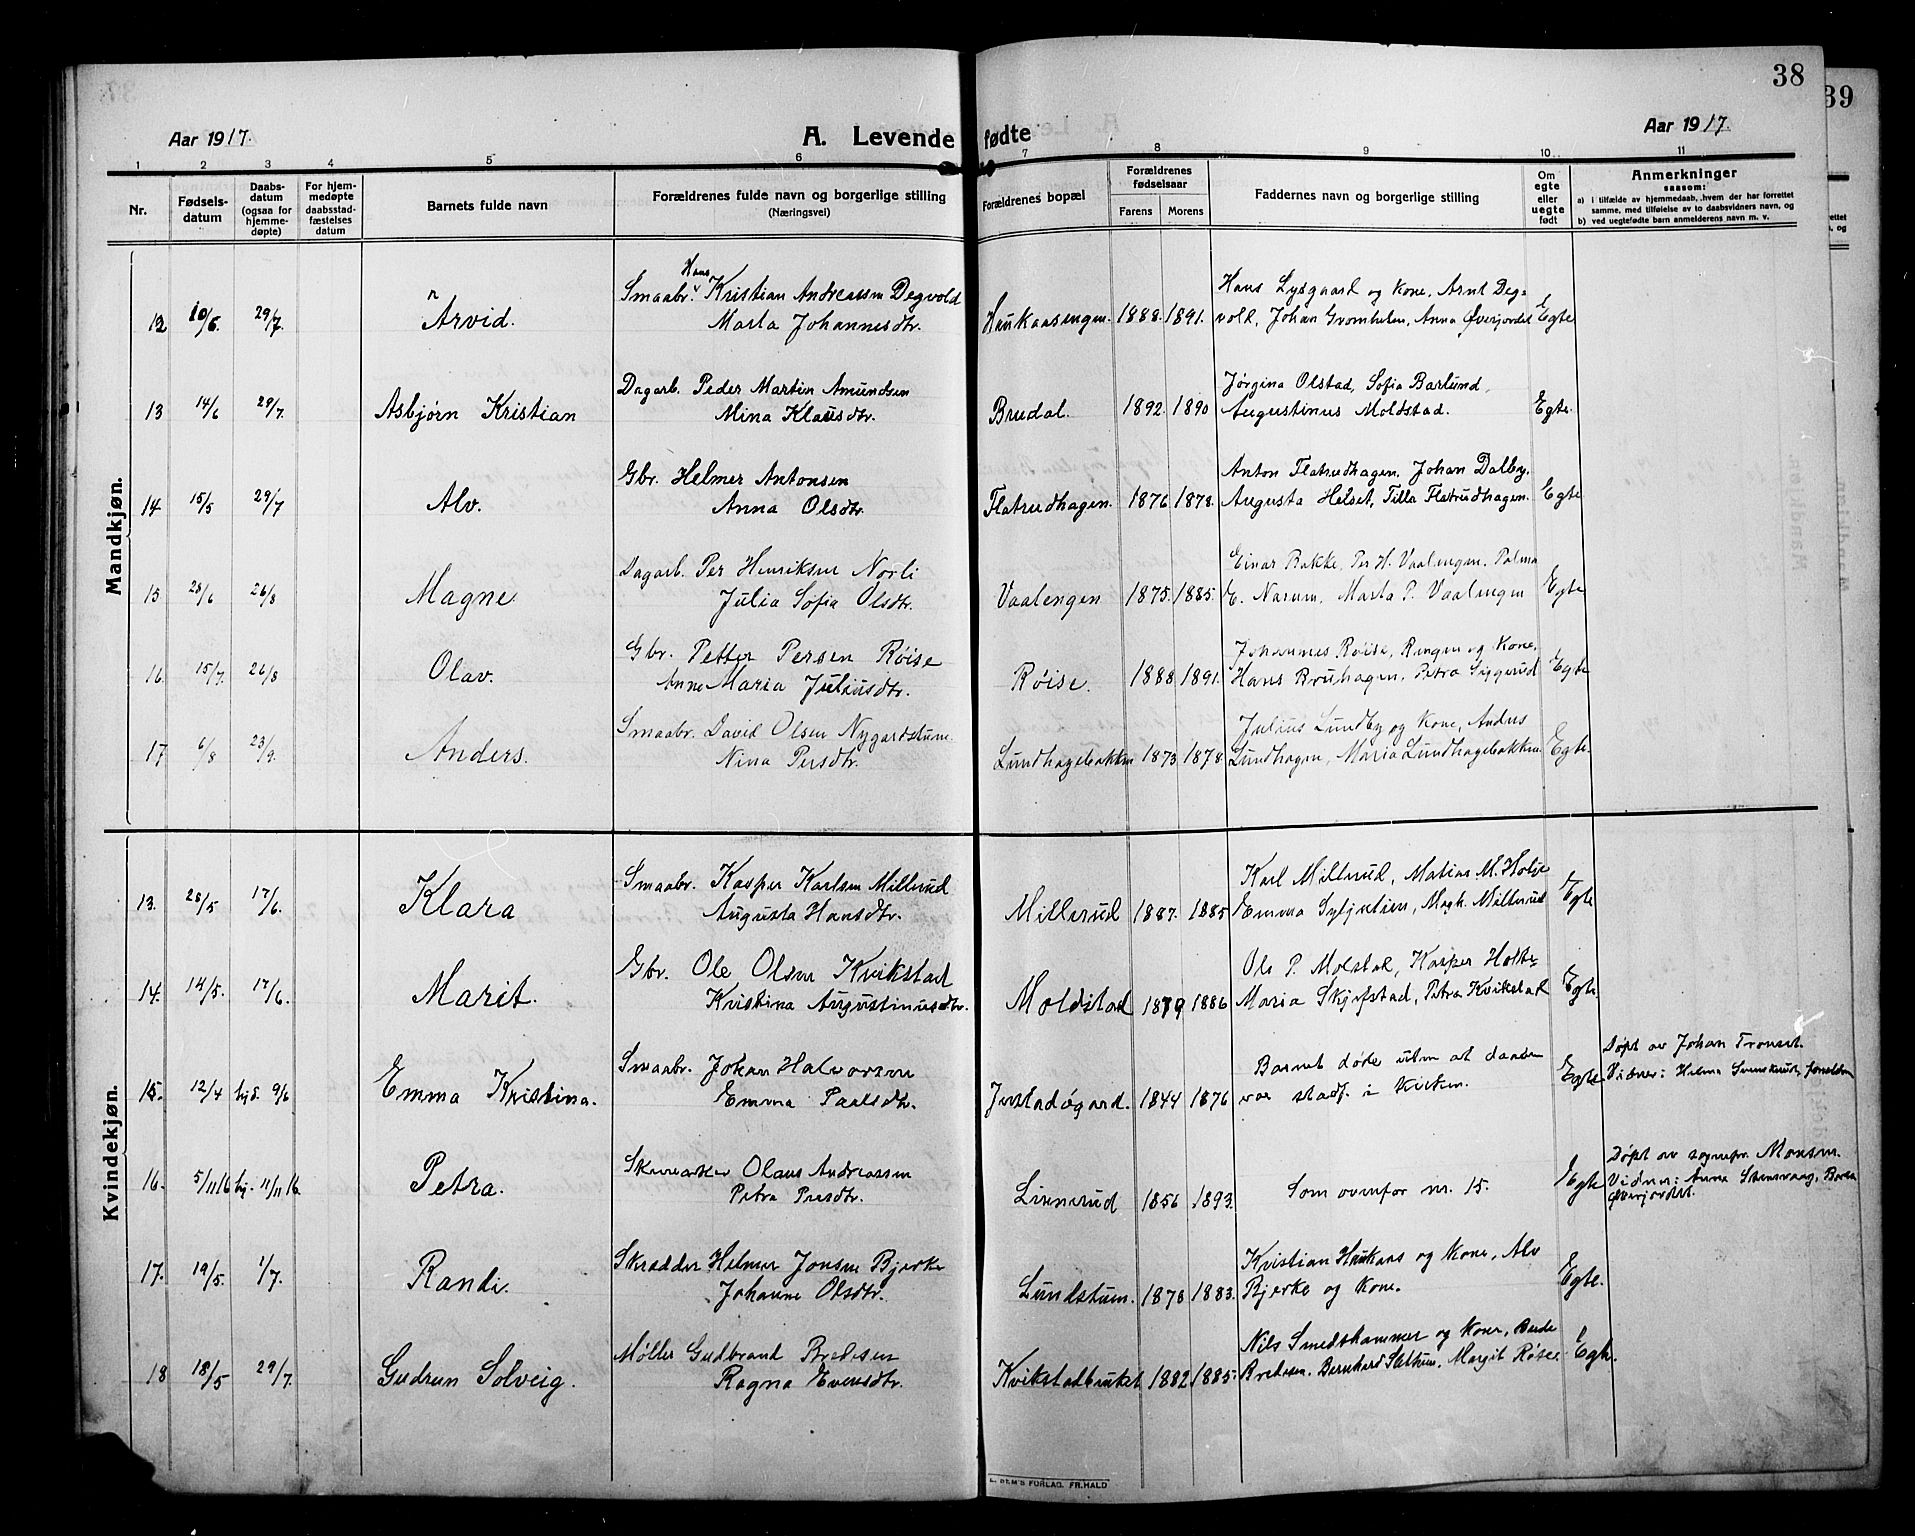 38
39
Aar 1917.
A. Levende fødte
Aar 1917.
1 2 3 4 5 6 7 8 9 10 11
Nr.
Fødsels-
datum
Daabs-
datum
(ogsaa for
hjemme-
døpte)
For hjem-
medøpte
daabsstad-
fæstelses
datum
Barnets fulde navn
Forældrenes fulde navn og borgerlige stilling
(Næringsvei)
Forældrenes bopæl
Forældrenes
fødselsaar
Farens Morens
Faddernes navn og borgerlige stilling
Om
egte
eller
uegte
født
Anmerkninger
saasom:
a) i tilfælde av hjemmedaab, hvem der har forrettet
samme, med tilføielse av to daabsvidners navn, og
b) ved uegtefødte barn anmelderens navn m. v.
Mandkjøn.
12 10/6. 29/7. Arvid. Smaabr. Hans Kristian Andreassen Degvold
Marta Johannesdtr.
Haukaasengen. 1888. 1891.
Hans Lysgaard og kone, Arnt Deg-
vold, Johan Gromholen, Anna Øverjordet
Egte
13 14/6 29/7. Asbjørn Kristian Dagarb. Peder Martin Amundsen
Mina Klausdtr.
Brudal. 1892. 1890
Jørgina Olstad, Sofia Barlund,
Augustinus Moldstad.
Egte.
14 15/5 29/7 Alv. Gbr. Helmer Antonsen
Anna Olsdtr.
Flatrudhagen. 1876 1878.
Anton Flatrudhagen, Johan Dalby,
Augusta Helset, Tilla Flatrudhagen.
Egte
15 28/6 26/8 Magne Dagarb. Per Henriksen Norli
Julia Sofia Olsdtr.
Vaalengen 1875. 1885.
Einar Bakke, Per H. Vaalengen, Palma
E. Narum, Marta P. Vaalengen
Egte
16. 15/7. 26/8 Olav. Gbr. Petter Persen Røise
Anne Maria Juliusdtr.
Røise. 1888 1891.
Johannes Røise, Ringen og kone,
Hans Bruhagen, Petra Siggerud
Egte
17 6/8 23/9. Anders. Smaabr. David Olsen Nygardstuen
Nina Persdtr.
Lundhagebakken 1873 1878.
Julius Lundby og kone, Anders
Lundhagen, Maria Lundhagebakken
Egte.
Kvindekjøn.
13. 28/5 17/6. Klara Smaabr. Kasper Karlsen Millerud
Augusta Hansdtr.
Millerud 1887. 1885
Karl Millerud, Matias M. Holse
Emma Syljulien, Magh. Millerud
Egte
14. 14/5. 17/6. Marit. Gbr. Ole Olsen Kvikstad
Kristina Augustinusdtr.
Moldstad 1879 1886
Ole P. Molstad, Kasper Holte-
Maria Skjefstad, Petra Kvikstad
Egte.
15. 12/4 hjd. 9/6 Emma Kristina. Smaabr. Johan Halvorsen
Emma Paalsdtr.
1844 1876
Barnet døde uten at daaben
var stadf. i kirken.
Egte
Døpt av Johan Tronset.
Vidner: Helma Svenskerud,
16. 5/11 16 hj. 11/11 16. Petra. Skomaker Olaus Andreassen
Petra Persdtr.
Linnerud 1856 1893.
Som ovenfor nr. 15.
Egte
Døpt av sognepr. Monsen.
Vidner: Anna Stensvaag,
Øverjordet.
17. 19/5. 1/7. Randi. Skrædder Helmer Jonsen Bjerke
Johanne Olsdtr.
Lundstuen. 1878 1883.
Kristian Haukaas og kone, Alv
Bjerke og kone.
Egte.
18 18/5 29/7. Gudrun Solveig. Møller Gudbrand Bredesen
Ragna Evensdtr.
Kvikstadbruket 1882 1885.
Nils Smedshammer og kone, Brede
Bredesen, Bernhard Slettum, Margit Røise
Egte.
FORLAG. FR. HALD